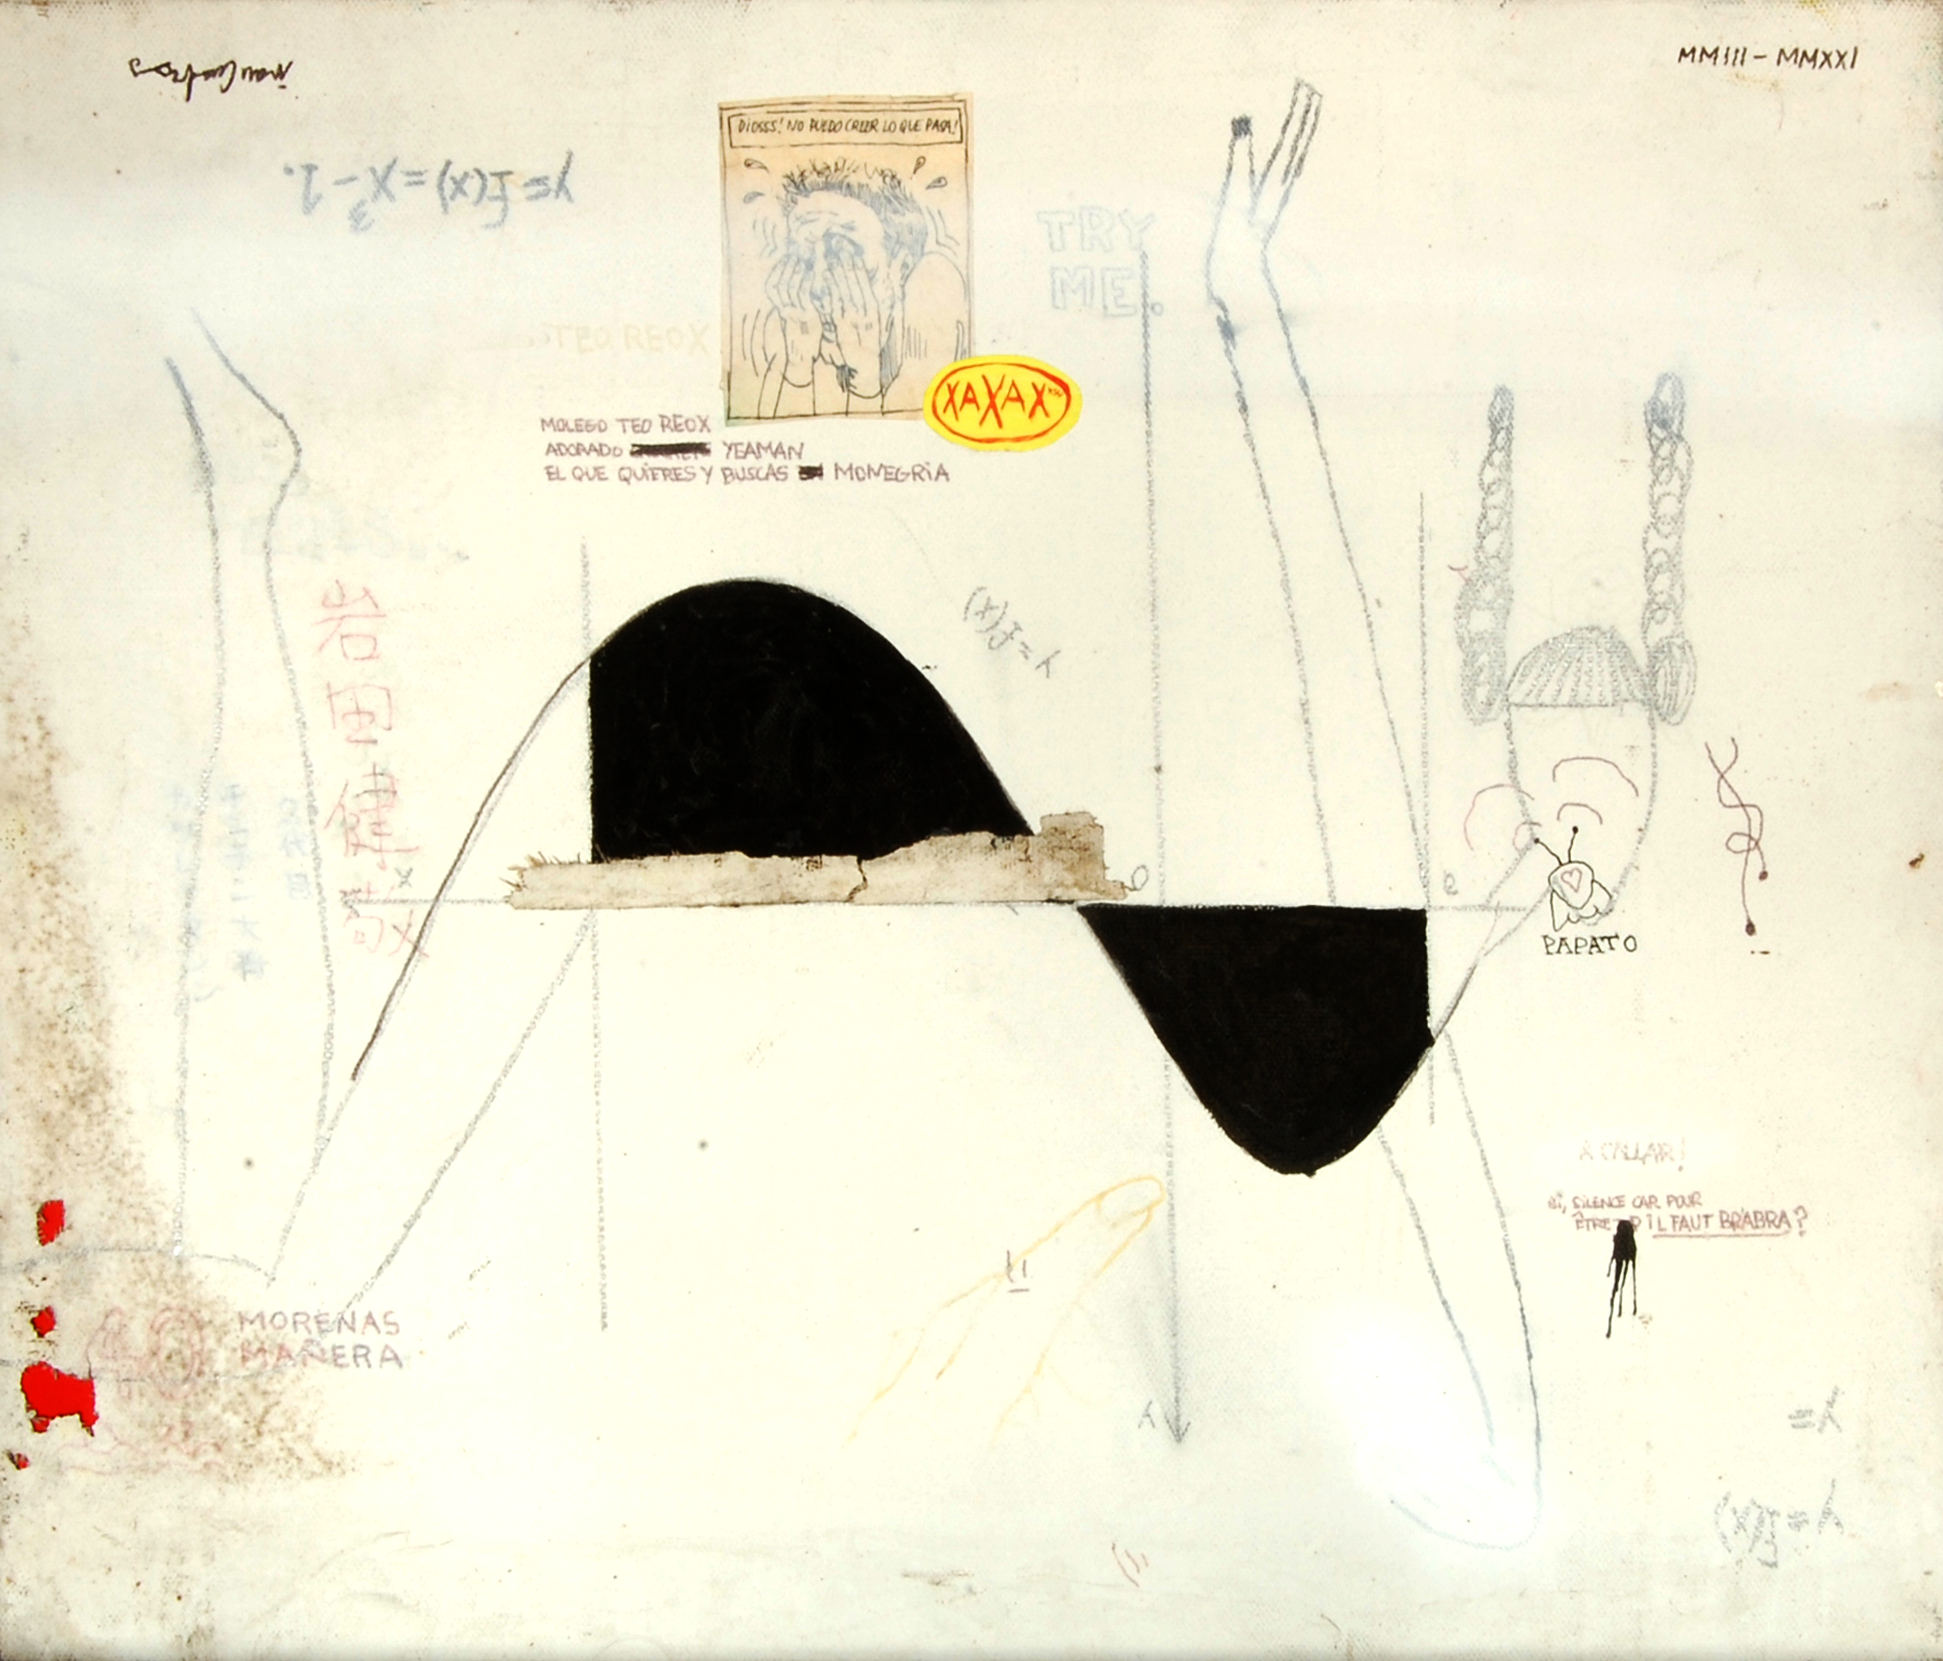 MMIII - MMXXI
DiOSSS! NO PUEDO CREER LO QUE PASA!
y = f(x) = x³ - 1.
TRY
ME.
TEO REOX
XAXAX
MOLEGO TEO REOX
ADORADO YEAMAN
EL QUE QUIERES Y BUSCAS MONEGRiA
y = f(x)
岩田健敬
x
PAPATO
A CALLAR!
SILENCE CAR POUR
ÊTRE IL FAUT BRABRA?
MORENAS
MAÑERA
y
y =
y = f(x)